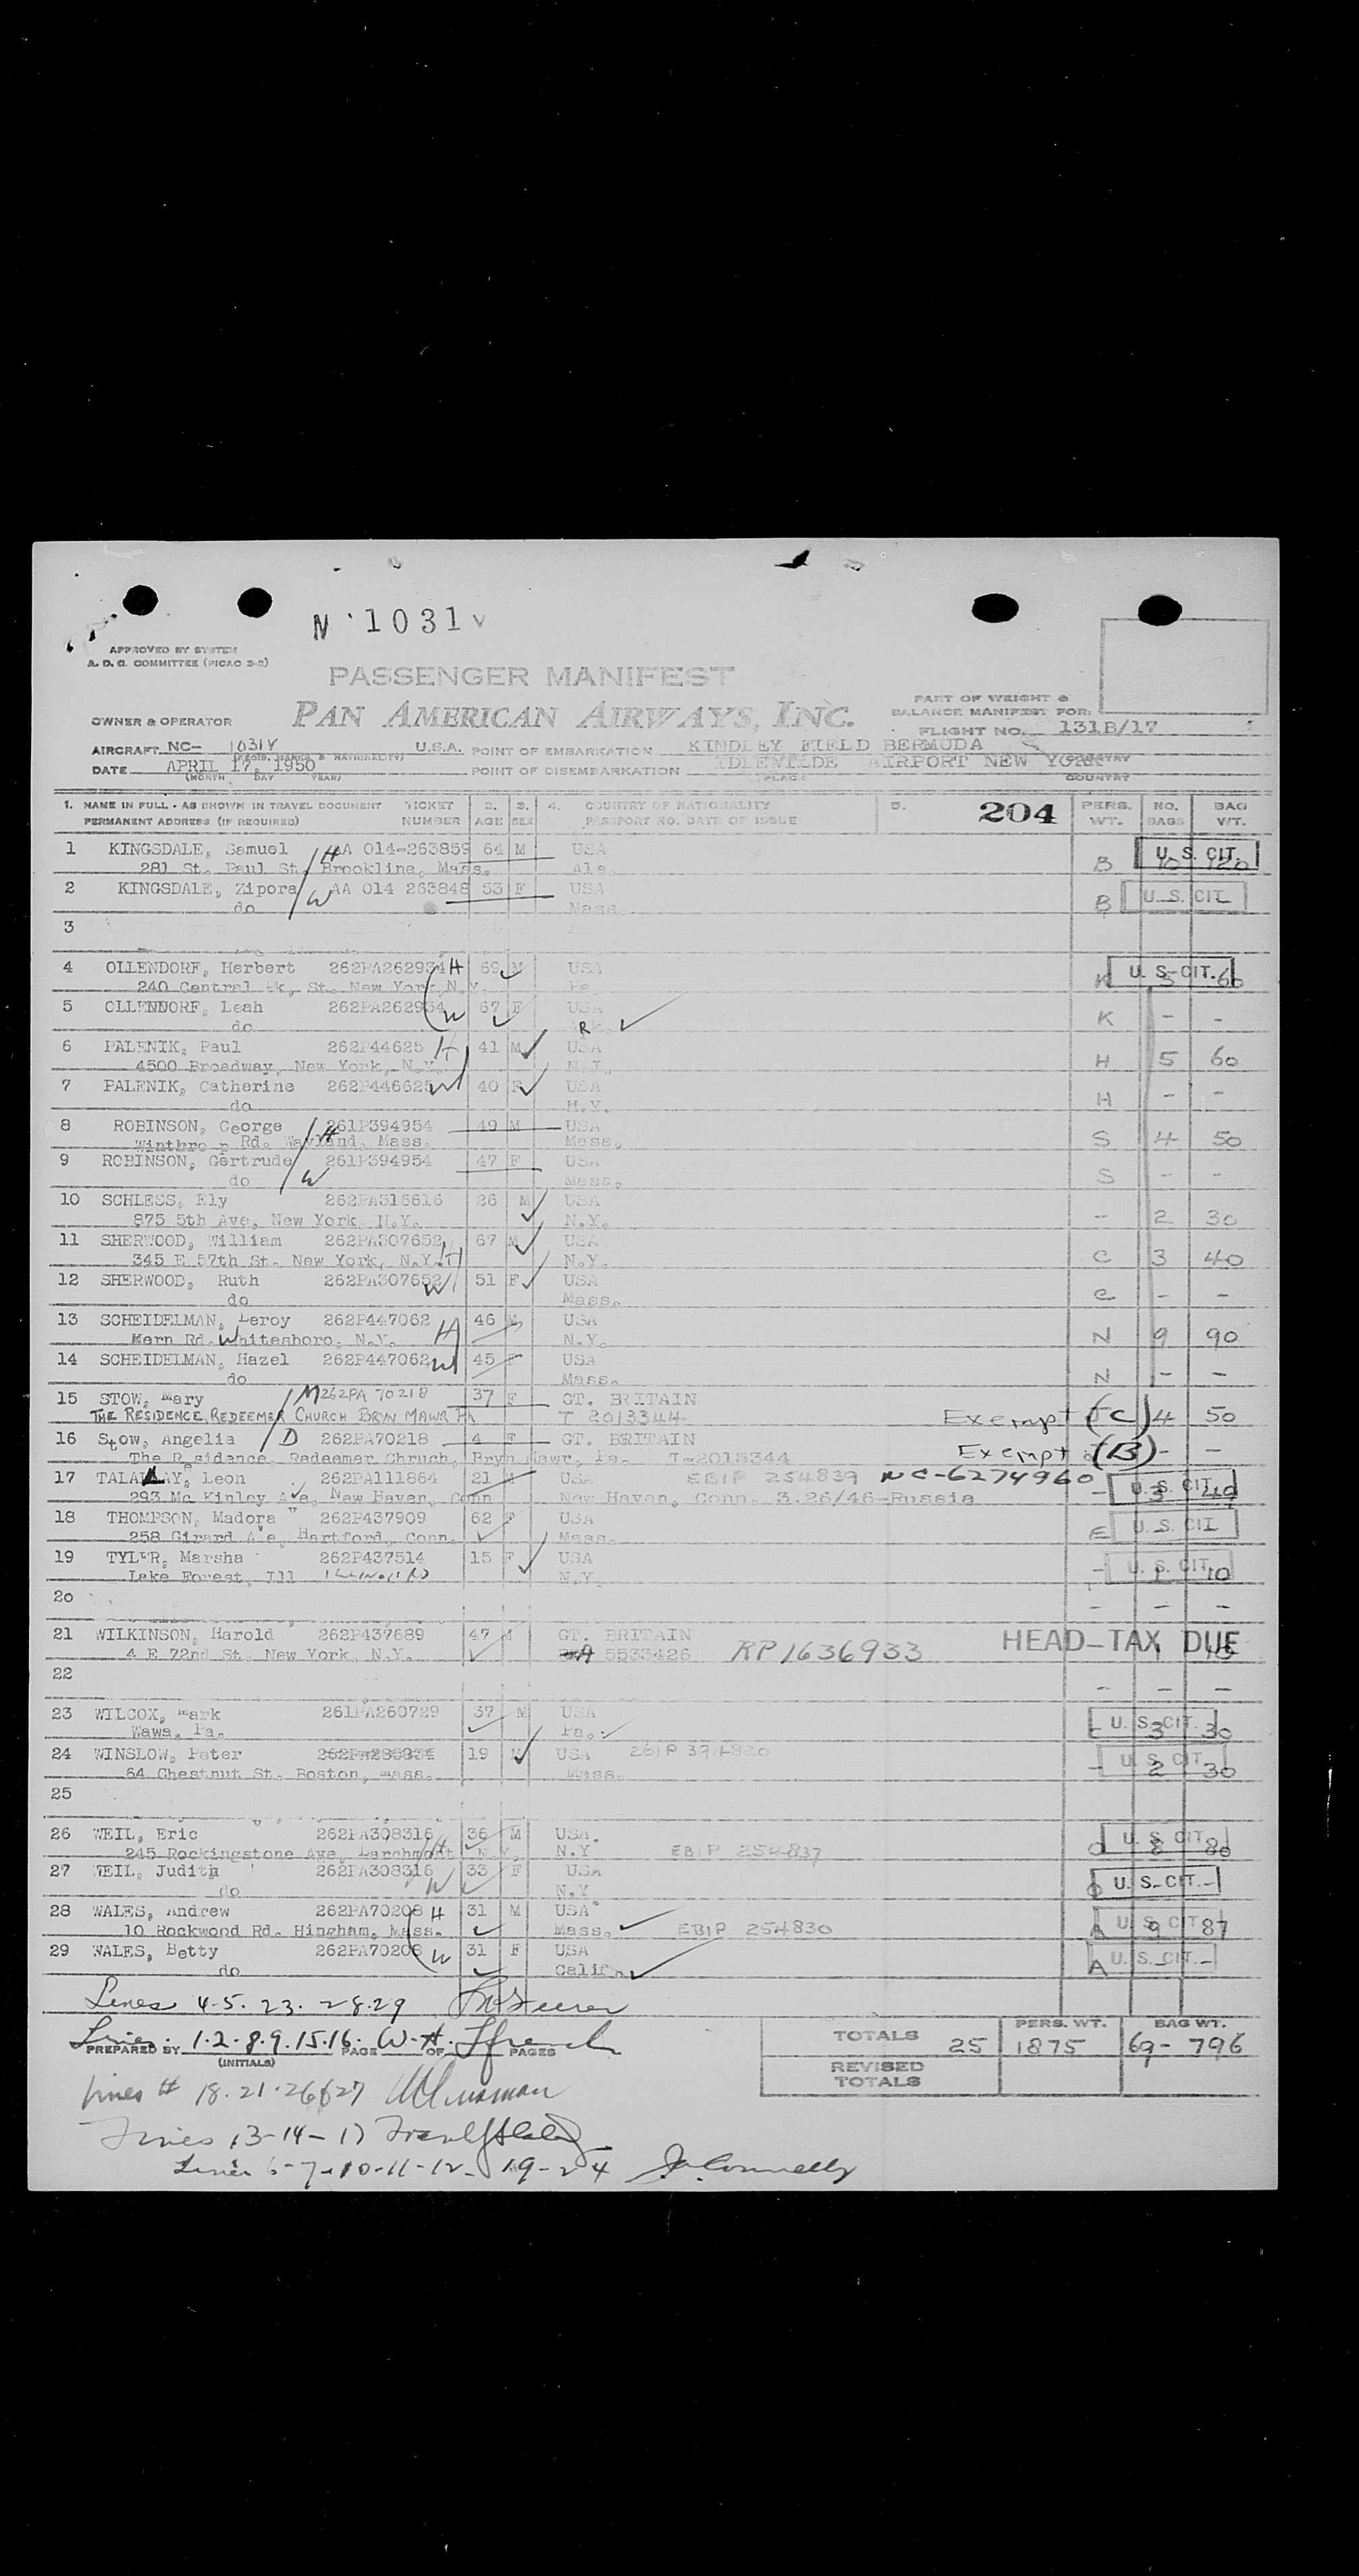 N 1031 V
APPROVED BY SYSTEM
A. D. C. COMMITTEE (PICAO 3-2)
PASSENGER MANIFEST
PART OF WEIGHT &
BALANCE MANIFEST FOR:
OWNER & OPERATOR PAN AMERICAN AIRWAYS, INC.
FLIGHT NO. 131B/17
AIRCRAFT NC- 1031V U.S.A. POINT OF EMBARKATION KINDLEY FIELD BERMUDA
DATE APRIL 17, 1950 POINT OF DISEMBARKATION IDLEWILDE AIRPORT NEW YORK
(MONTH DAY YEAR) (PLACE) COUNTRY
1. NAME IN FULL - AS SHOWN IN TRAVEL DOCUMENT TICKET 2. 3. 4. COUNTRY OF NATIONALITY 5. 204 PERS. NO. BAG
PERMANENT ADDRESS (IF REQUIRED) NUMBER AGE SEX PASSPORT NO. DATE OF ISSUE WT. BAGS WT.
1 KINGSDALE, Samuel H AA 014-263859 64 M USA B 10 120 U. S. CIT.
281 St. Paul St. Brookline, Mass. Ala.
2 KINGSDALE, Zipora W AA 014 263848 53 F USA B U. S. CIT
do Mass.
3
4 OLLENDORF, Herbert 262PA262934 H 69 M USA K 5 60 U. S. CIT.
240 Central Pk. St. New York, N.Y. Pa.
5 OLLENDORF, Leah 262PA262934 W 67 F USA K - -
do Ark.
6 PALENIK, Paul 262P44625 H 41 M USA H 5 60
4500 Broadway, New York, N.Y. N.J.
7 PALENIK, Catherine 262P446625 W 40 F USA H - -
do N.Y.
8 ROBINSON, George H 261P394954 49 M USA S 4 50
Winthrop Rd. Wayland, Mass. Mass.
9 ROBINSON, Gertrude W 261P394954 47 F USA S - -
do Mass.
10 SCHLESS, Ely 262PA316616 26 M USA - 2 30
875 5th Ave, New York, N.Y. N.Y.
11 SHERWOOD, William 262PA307652 67 M USA C 3 40
345 E 57th St. New York, N.Y. H N.Y.
12 SHERWOOD, Ruth 262PA307652 W 51 F USA C - -
do Mass.
13 SCHEIDELMAN, Leroy 262P447062 46 M USA N 9 90
Mern Rd. Whitesboro, N.Y. H N.Y.
14 SCHEIDELMAN, Hazel 262P447062 W 45 F USA N - -
do Mass.
15 STOW, Mary M 262PA 70218 37 F GT. BRITAIN Exempt (C) 4 50
THE RESIDENCE, REDEEMER CHURCH BRYN MAWR PA T 2013344
16 Stow, Angelia D 262PA70218 4 F GT. BRITAIN Exempt (B) - -
The Residence, Redeemer Chruch, Bryn Mawr, Pa. T-2013344
17 TALALAY, Leon 262PA111864 21 M USA EBIP 254839 NC-6274960 - 3 U. S. CIT.
293 Mc Kinley Ave, New Haven, Conn New Haven, Conn. 3.26/46-Russia
18 THOMPSON, Madora 262P437909 62 F USA E U. S. CIT
258 Girard Ave, Hartford, Conn. Mass.
19 TYLER, Marsha 262P437514 15 F USA - 1 10 U. S. CIT.
Lake Forest, Ill ILLINOIS N.Y.
20 - - -
21 WILKINSON, Harold 262P437689 47 M GT. BRITAIN HEAD-TAX DUE
4 E 72nd St. New York, N.Y. 5533426 RP 1636933
22 - - -
23 WILCOX, Mark 261PA260729 37 M USA C 3 30 U. S. CIT.
Wawa, Pa. Pa.
24 WINSLOW, Peter 19 M USA 261P 394820 - 2 30 U. S. CIT
64 Chestnut St. Boston, Mass. Mass.
25
26 WEIL, Eric 262PA308316 36 M USA. 8 80 U. S. CIT.
245 Rockingstone Ave, Larchmont N.Y. H N.Y EBIP 254837
27 WEIL, Judith 262PA308316 W 33 F USA U. S. CIT.
do N.Y
28 WALES, Andrew 262PA70208 H 31 M USA A 9 87 U. S. CIT
10 Rockwood Rd. Hingham, Mass. Mass. EBIP 254830
29 WALES, Betty 262PA70208 W 31 F USA A - - U. S. CIT.
do Calif.
Lines 4-5. 23. 28.29
Lines 1-2-8-9.15.16. W.H. French
PREPARED BY (INITIALS) PAGE OF PAGES
TOTALS 25 PERS. WT. 1875 BAG WT. 69- 796
REVISED TOTALS
Lines # 18.21.26&27
Lines 13-14-17
Lines 6-7-10-11-12- 19-24 Connelly